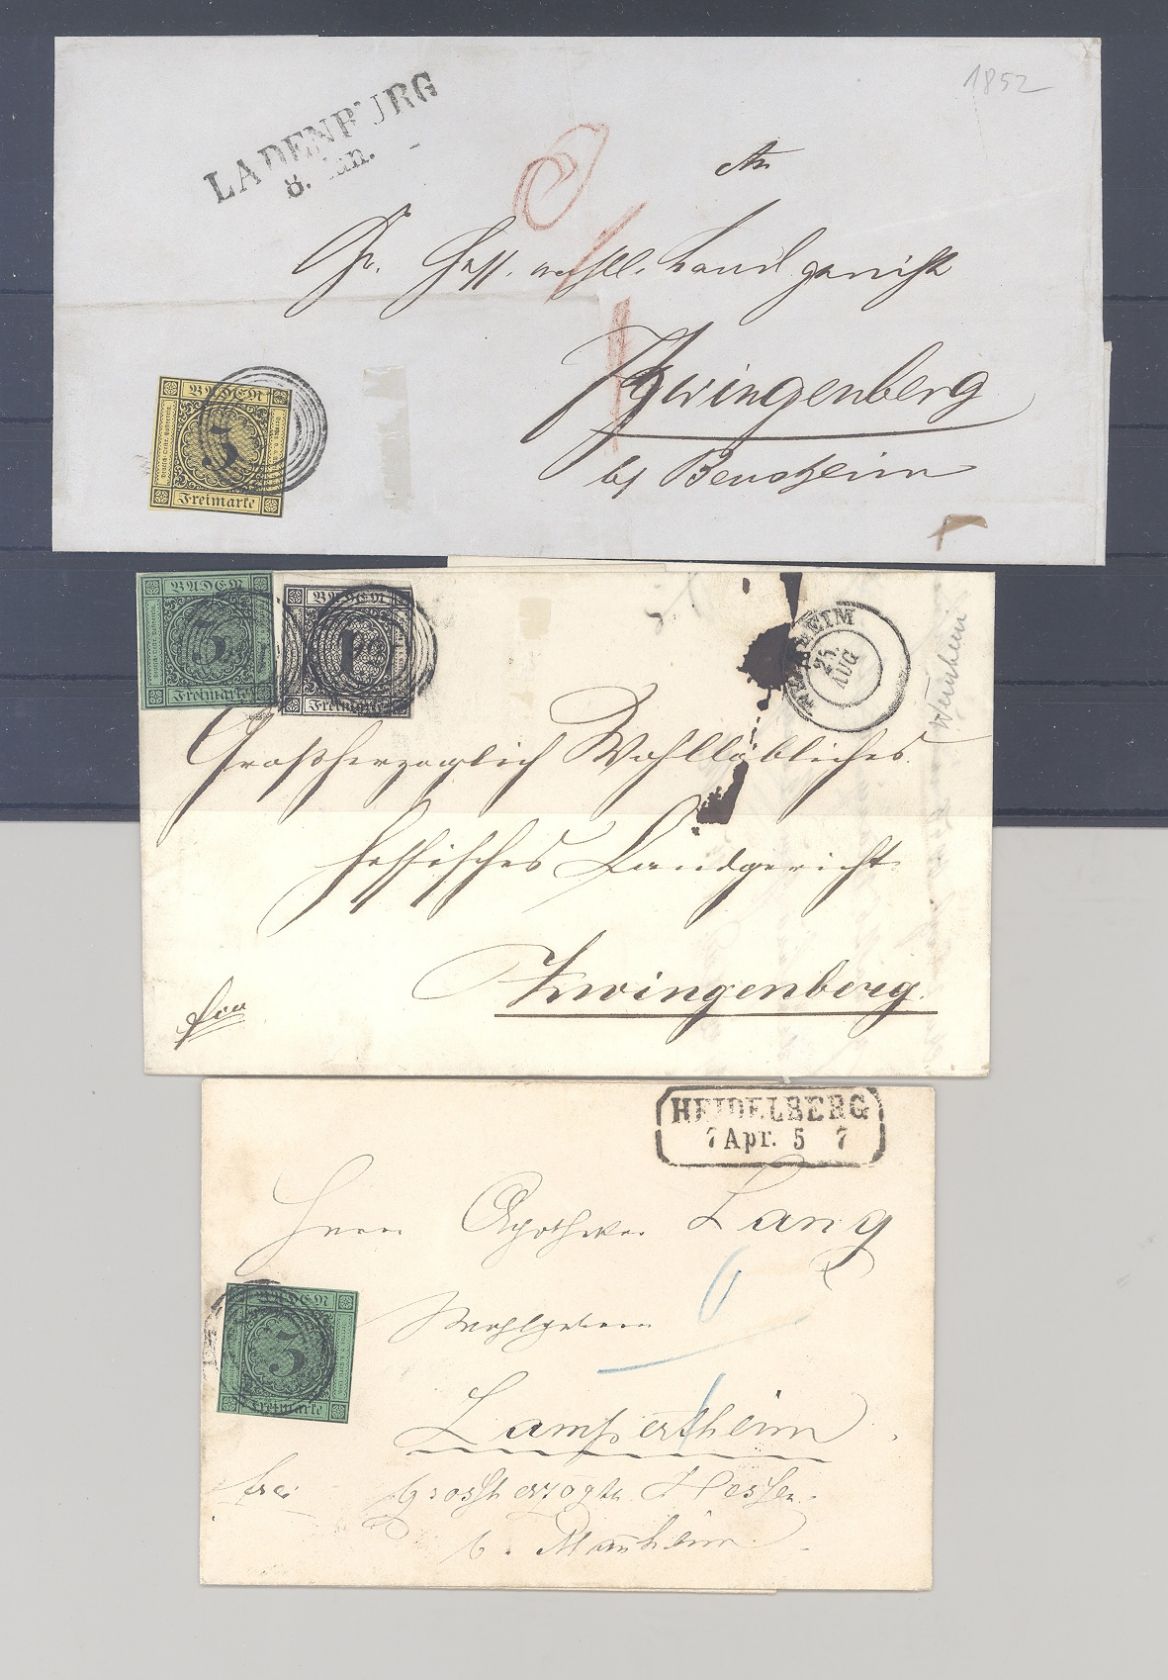 1852
LADENBURG
8. Jan.
An
Gr. Hess. wohll. Landgericht
Zwingenberg
by Bensheim
BADEN
3
Freimarke
BADEN
3
Freimarke
BADEN
1
Freimarke
25.
AUG
Weinheim
Großherzoglich Wohllöbliches
Hessisches Landgericht
Zwingenberg.
fco
HEIDELBERG
7 Apr. 5 7
Herrn Apotheker Lang
Wohlgeboren
BADEN
3
Freimarke
Lampertheim
frei
Grossherzogth. Hessen.
b. Manheim.